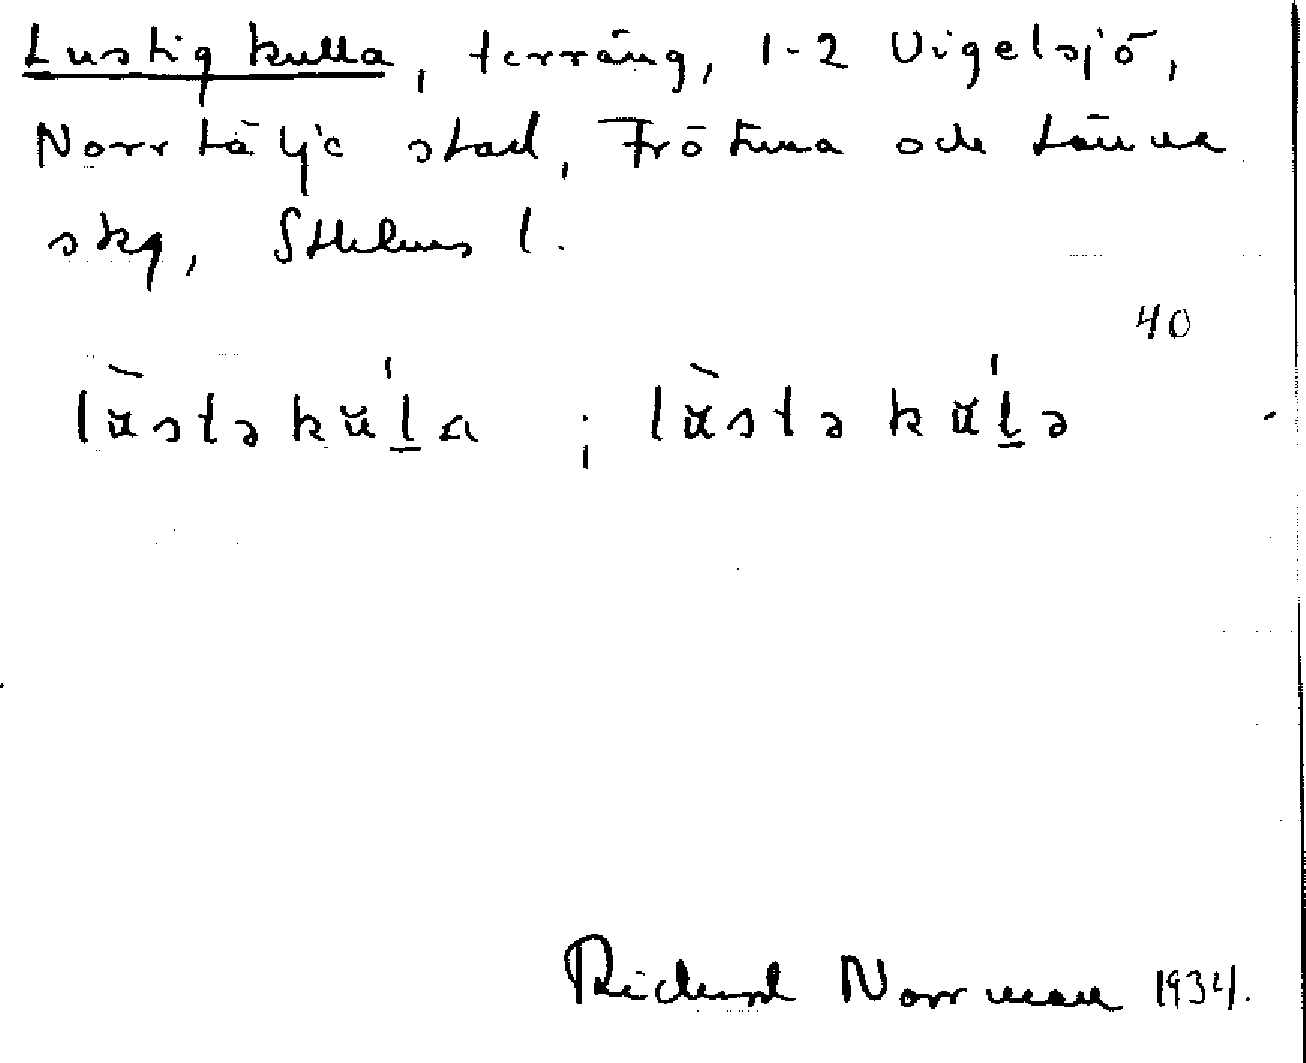 Lustigkulla, terräng, 1-2 Vigelsjö,
Norrtälje stad, Frötuna och Länna
skg, Sthlms l.
40
lùstəkúl̠a ; lùstəkúl̠ə
Richard Norrman 1934.